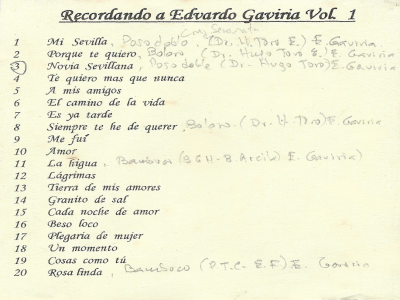 Recordando a Edvardo Gaviria Vol. 1
1 Mi Sevilla, Paso doble, (Dr. H. Toro E.) E. Gaviria
2 Porque te quiero, Bolero, (Dr. Hugo Toro E.) E. Gaviria
3 Novia Sevillana, Paso doble (Dr. Hugo Toro) E. Gaviria
4 Te quiero mas que nunca
5 A mis amigos
6 El camino de la vida
7 Es ya tarde
8 Siempre te he de querer, Bolero. (Dr. H. Toro) E. Gaviria
9 Me fuí
10 Amor
11 La higua, Bambuco (B. Arcila) E. Gaviria)
12 Lágrimas
13 Tierra de mis amores
14 Granito de sal
15 Cada noche de amor
16 Beso loco
17 Plegaria de mujer
18 Un momento
19 Cosas como tú
20 Rosa linda, Bambuco (P.T.C. - E.F.) E. Gaviria